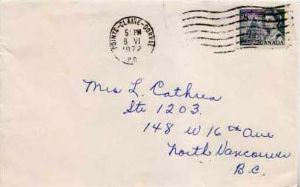 POINTE-CLAIRE-DORVAL
5 PM
8 VI
1972
P.Q.
CANADA
Mrs L. Cathro
Ste 1203.
148 W 16th Ave
North Vancouver
B.C.